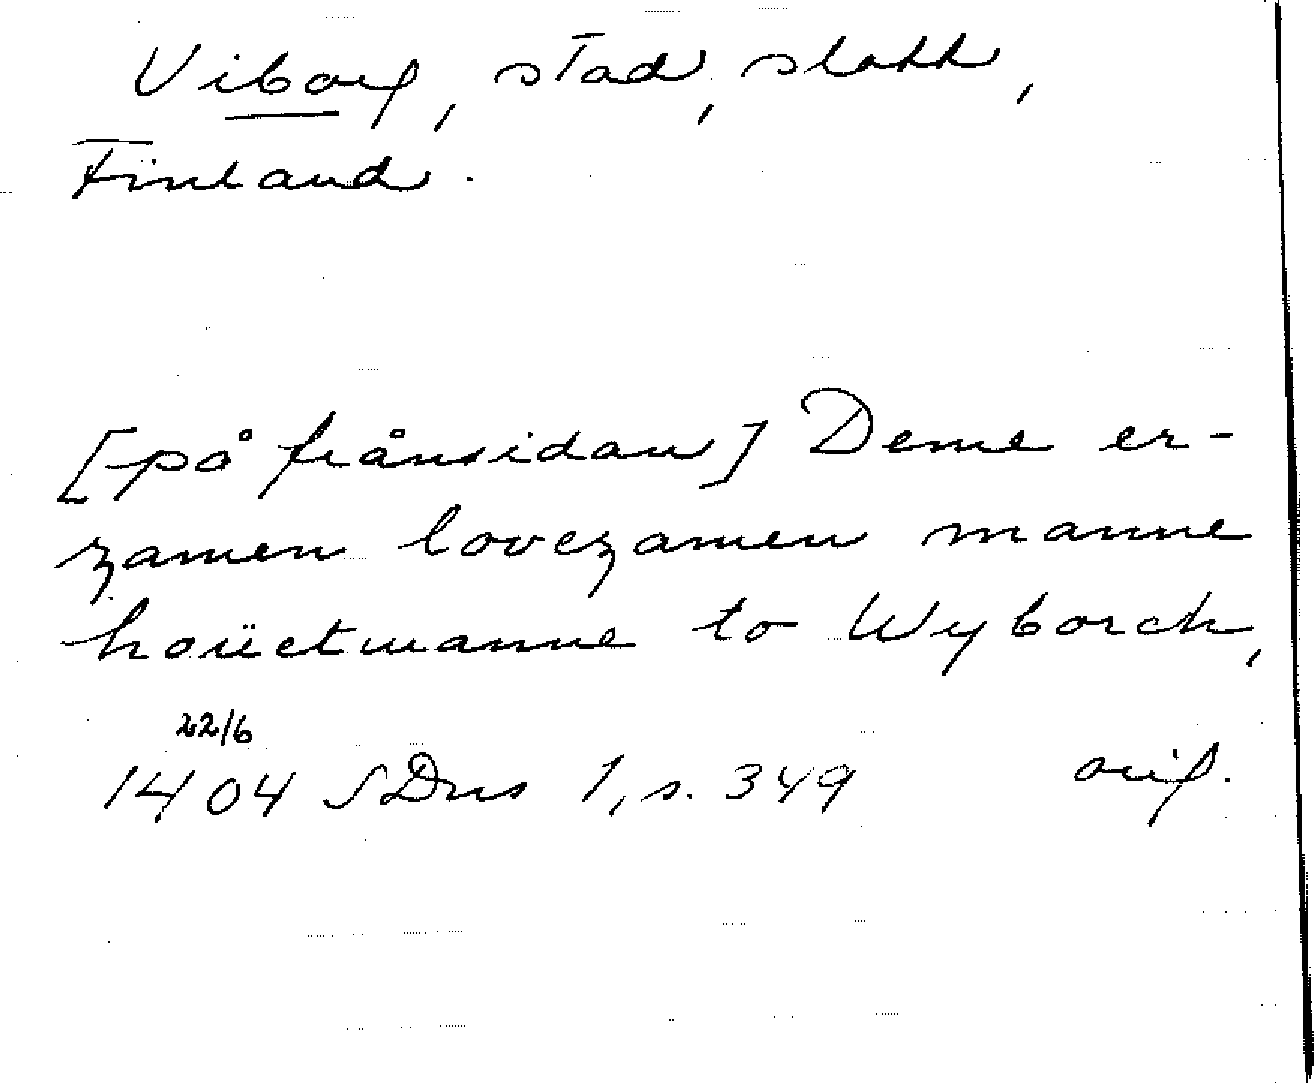 Viborg, stad, slott,
Finland.
[på frånsidan] Deme er-
zamen lovezamen manne
houetmanne to Wyborch,
22/6
1404 SDns 1, s. 349 orig.